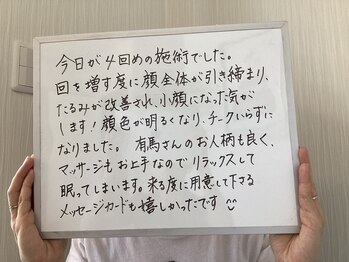 今日が4回めの施術でした。
回を増す度に顔全体が引き締まり、
たるみが改善され、小顔になった気が
します!顔色が明るくなり、チークいらずに
なりました。有馬さんのお人柄も良く、
マッサージもお上手なのでリラックスして
眠ってしまいます。来る度に用意して下さる
メッセージカードも嬉しかったです